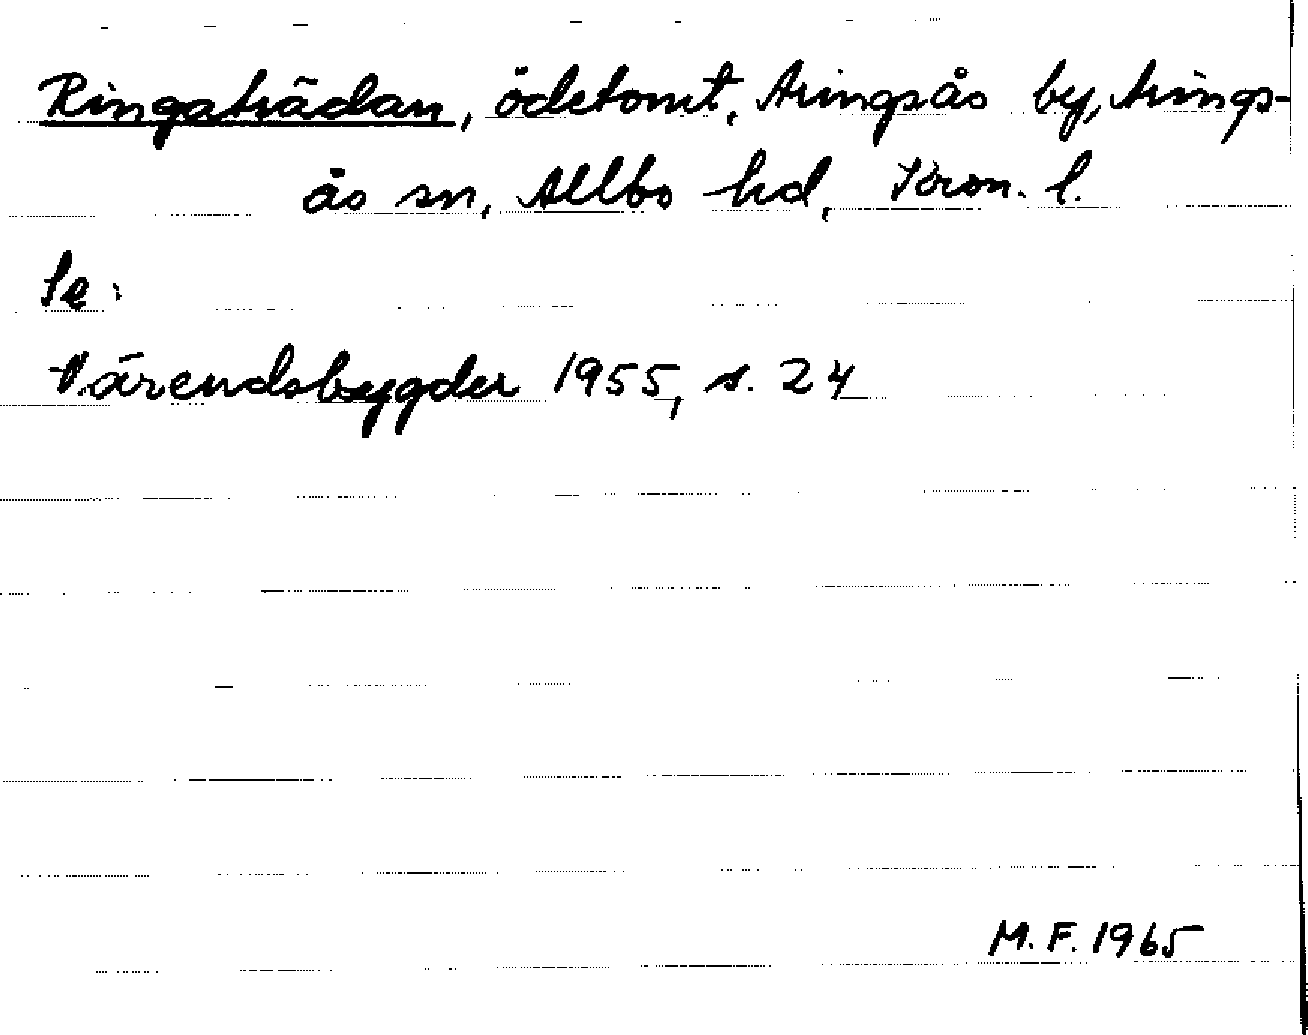 Ringaträdan, ödetomt, Aringsås by, Arings-
ås sn, Allbo hd, Kron. l.
Se:
Värendsbygder 1955, s. 24
M.F. 1965